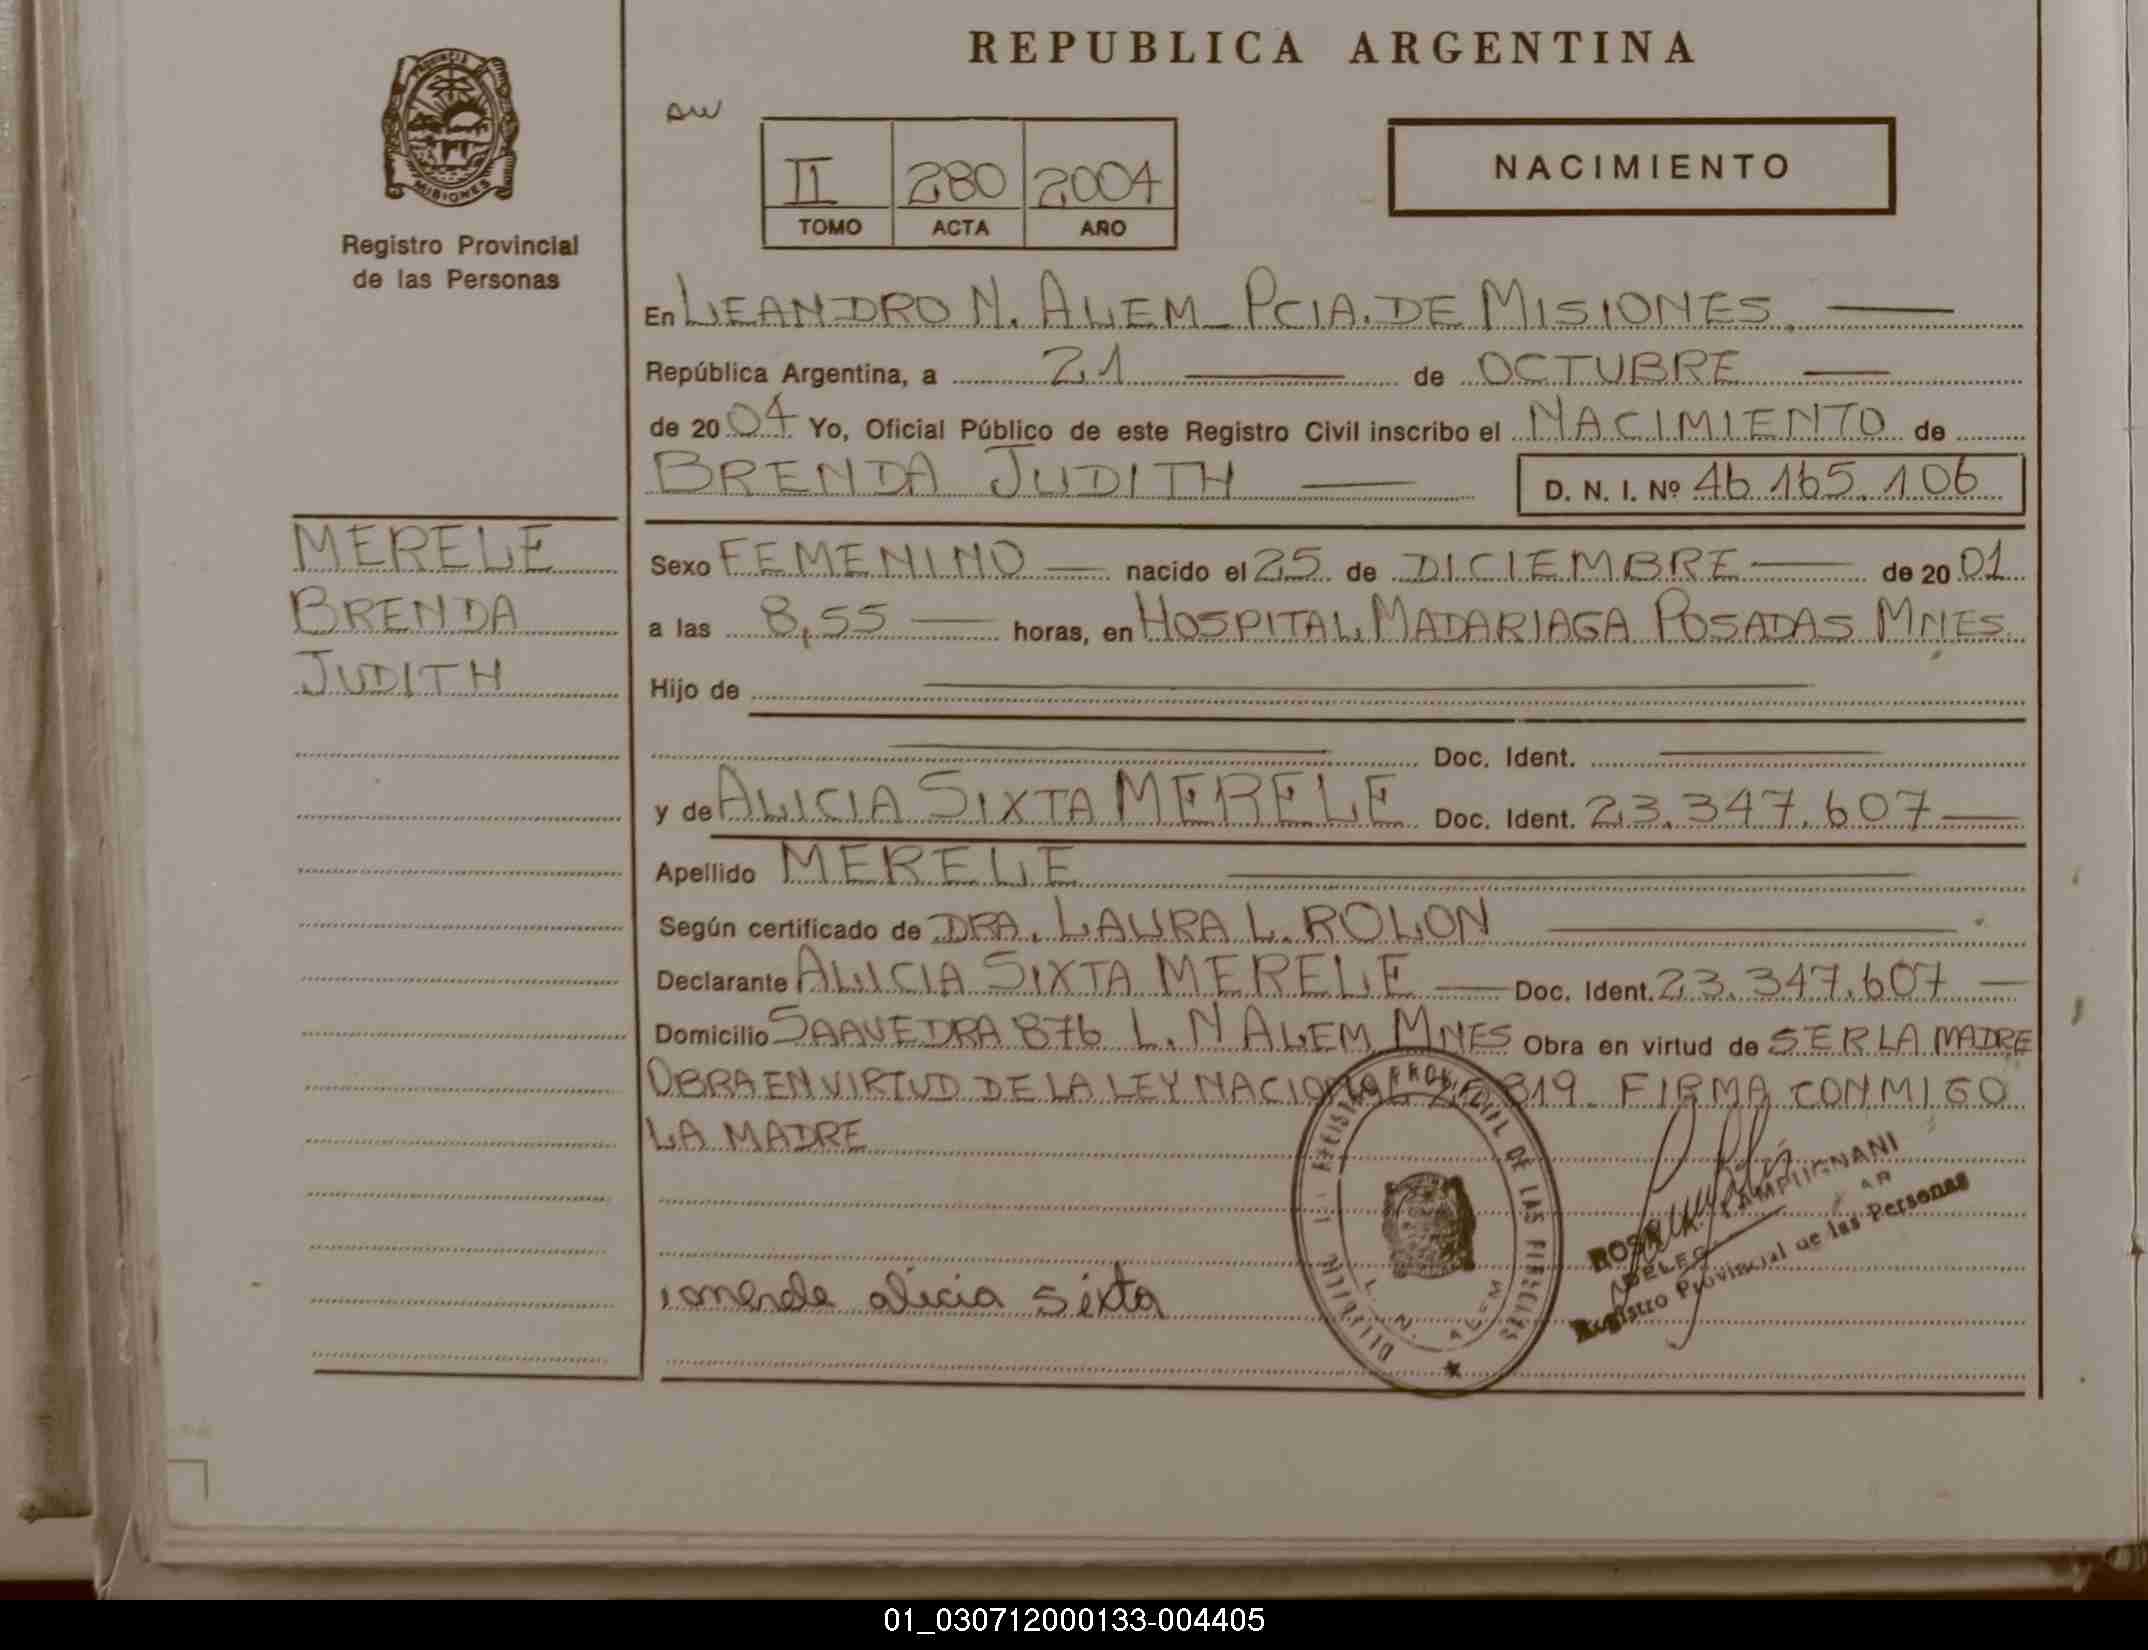 REPUBLICA ARGENTINA
PROVINCIA DE
MISIONES
Registro Provincial
de las Personas
II 280 2004
TOMO ACTA AÑO
NACIMIENTO
En LEANDRO N. ALEM - PCIA. DE MISIONES.
República Argentina, a 21 de OCTUBRE
de 2004 Yo, Oficial Público de este Registro Civil inscribo el NACIMIENTO de
BRENDA JUDITH D. N. I. Nº 46.165.106
MERELE
BRENDA
JUDITH
Sexo FEMENINO nacido el 25 de DICIEMBRE de 2001
a las 8,55 horas, en HOSPITAL MADARIAGA POSADAS MNES.
Hijo de
Doc. Ident.
y de ALICIA SIXTA MERELE Doc. Ident. 23.347.607
Apellido MERELE
Según certificado de DRA. LAURA L. ROLON
Declarante ALICIA SIXTA MERELE Doc. Ident. 23.347.607
Domicilio SAAVEDRA 876 L. N ALEM MNES Obra en virtud de SER LA MADRE
OBRA EN VIRTUD DE LA LEY NACIONAL 819. FIRMA CONMIGO
LA MADRE
alicia sixta
DE LAS
L. N. ALEM
Registro Provincial de las Personas
01_030712000133-004405